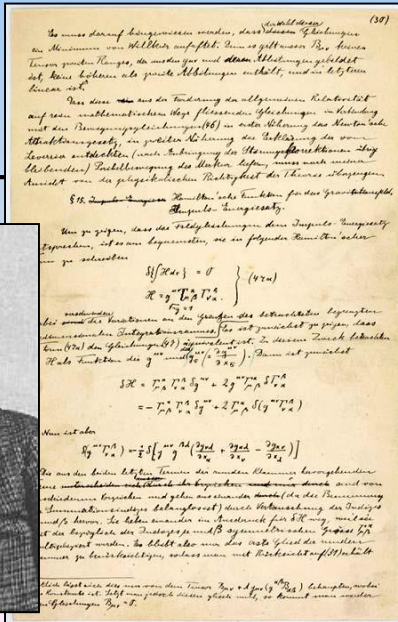 (30)
der Wahl dieser
Es muss darauf hingewiesen werden, dass diesen Gleichungen
ein Minimum von Willkür anhaftet. Denn es gibt ausser Bμν keinen
Tensor zweiten Ranges, der aus den gμν und deren Ableitungen gebildet
ist, keine höheren als zweite Ableitungen enthält, und in letzteren
linear ist.
Dass diese aus der Forderung der allgemeinen Relativität
auf rein mathematischem Wege fliessenden Gleichungen in Verbindung
mit den Bewegungsgleichungen (46) in erster Näherung das Newton'sche
Attraktionsgesetz, in zweiter Näherung die Erklärung der von
Leverrier entdeckten (nach Anbringung der Störungskorrektionen übrig
bleibenden) Perihelbewegung des Merkur liefern, muss nach meiner
Ansicht von der physikalischen Richtigkeit der Theorie überzeugen.
§ 15. Hamilton'sche Funktion für das Gravitationsfeld,
Impuls-Energiesatz.
Um zu zeigen, dass die Feldgleichungen dem Impuls-Energiesatz
entsprechen, ist es am bequemsten, sie in folgender Hamilton'scher
zu schreiben
δ{∫H dτ} = 0
H = g^μν Γ^α_μβ Γ^β_να } (47a)
√-g = 1
verschwinden
die Variationen an den Grenzen des betrachteten begrenzten
Integrationsraumes. Es ist zunächst zu zeigen, dass
(47a) den Gleichungen (47) äquivalent ist. Zu diesem Zweck betrachten
H als Funktion der g^μν und g^μν_σ (= ∂g^μν/∂x_σ). Dann ist zunächst
δH = Γ^α_μβ Γ^β_να δg^μν + 2 g^μν Γ^α_μβ δΓ^β_να
= − Γ^α_μβ Γ^β_να δg^μν + 2 Γ^α_μβ δ(g^μν Γ^β_να)
Nun ist aber
δ(g^μν Γ^β_να) = −½ δ[g^μν g^βλ (∂g_νλ/∂x_α + ∂g_αλ/∂x_ν − ∂g_αν/∂x_λ)]
Die aus den beiden letzten Termen der runden Klammer hervorgehenden
sind von
verschiedenem Vorzeichen und gehen auseinander (da die Benennung
Summationsindizes belanglos ist) durch Vertauschung der Indizes
und β hervor. Sie heben einander im Ausdruck für δH weg, weil sie
mit der bezüglich der Indizes μ und β symmetrischen Grösse Γ^α_μβ
multipliziert werden. Es bleibt also nur das erste Glied der runden
Klammer zu berücksichtigen, sodass man mit Rücksicht auf (31) erhält
lässt sich dies nur von dem Tensor Bμν + λ gμν (g^αβ Bαβ) behaupten, wobei
Konstante ist. Setzt man jedoch diesen gleich null, so kommt man wieder
Gleichungen Bμν = 0.